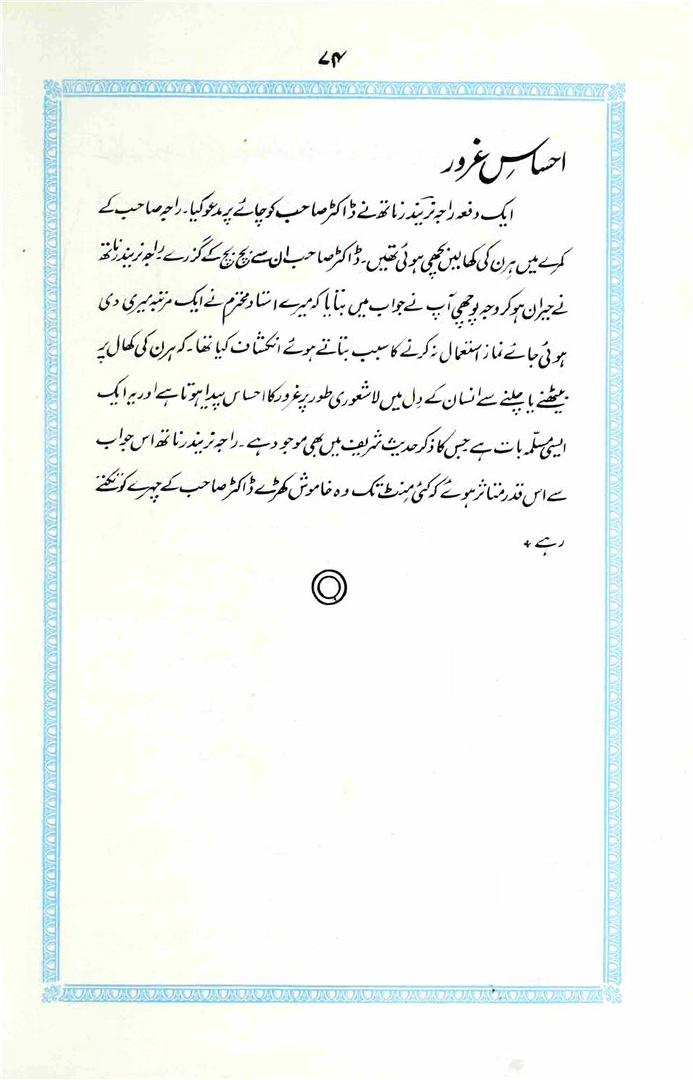 ۷۴
احساسِ غرور
ایک دفعہ راجہ نریندر ناتھ نے ڈاکٹر صاحب کو چائے پر مدعو کیا۔ راجہ صاحب کے
کمرے میں ہرن کی کھالیں بچھی ہوئی تھیں۔ ڈاکٹر صاحب ان سے بچ بچ کے گزرے۔ راجہ نریندر ناتھ
نے حیران ہو کر وجہ پوچھی آپ نے جواب میں بتایا کہ میرے استاد محترم نے ایک مرتبہ میری دی
ہوئی جائے نماز استعمال نہ کرنے کا سبب بتاتے ہوئے انکشاف کیا تھا۔ کہ ہرن کی کھال پر
بیٹھنے یا چلنے سے انسان کے دِل میں لاشعوری طور پر غرور کا احساس پیدا ہوتا ہے اور یہ ایک
ایسی مسلّمہ بات ہے جس کا ذکر حدیث شریف میں بھی موجود ہے۔ راجہ نریندر ناتھ اس جواب
سے اس قدر متاثر ہوئے کہ کئی مِنٹ تک وہ خاموش کھڑے ڈاکٹر صاحب کے چہرے کو تکتے
رہے ٭